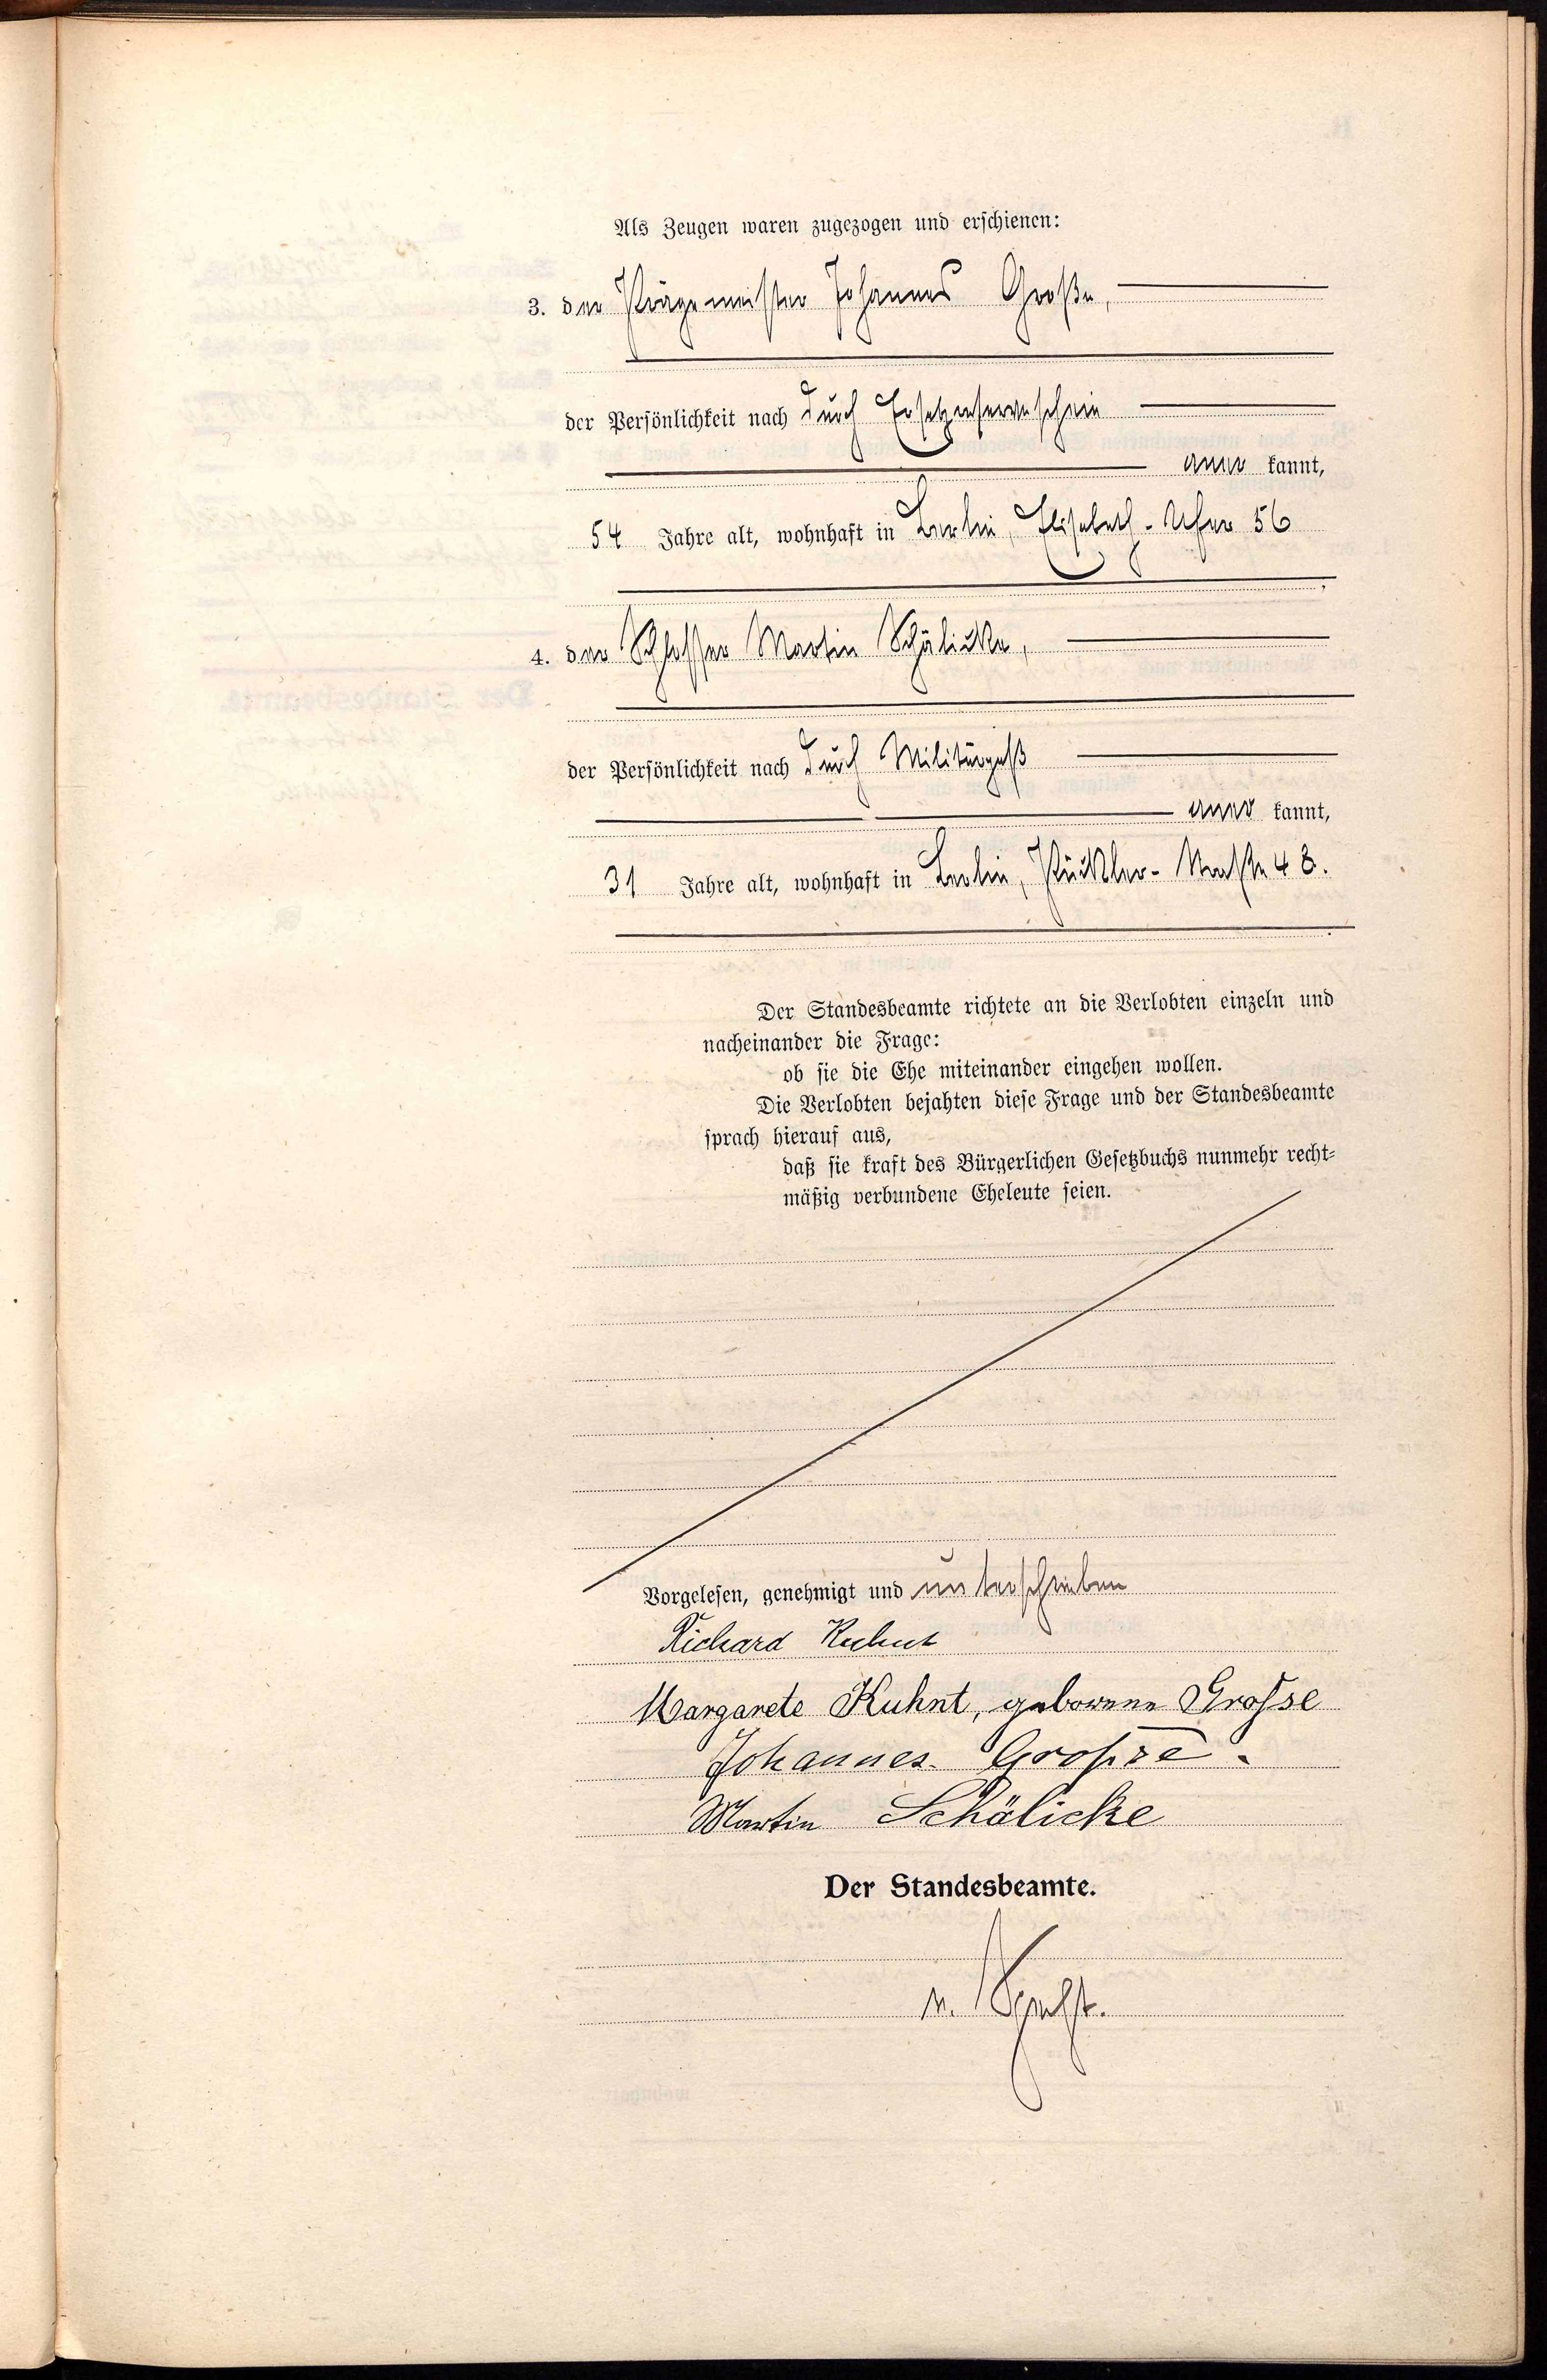 Als Zeugen waren zugezogen und erschienen:
3. der Prägemeister Johannes Große,
der Persönlichkeit nach durch Ersatzreserveschein
aner kannt,
54 Jahre alt, wohnhaft in Berlin, Elisabeth-Ufer 56
4. der Schlosser Martin Schälicke,
der Persönlichkeit nach durch Militärpaß
aner kannt,
31 Jahre alt, wohnhaft in Berlin, Pückler-Straße 48.
Der Standesbeamte richtete an die Verlobten einzeln und
nacheinander die Frage:
ob sie die Ehe miteinander eingehen wollen.
Die Verlobten bejahten diese Frage und der Standesbeamte
sprach hierauf aus,
daß sie kraft des Bürgerlichen Gesetzbuchs nunmehr recht-
mäßig verbundene Eheleute seien.
Vorgelesen, genehmigt und unterschrieben
Richard Kuhnt
Margarete Kuhnt, geborenne Grosse
Johannes Grosse.
Martin Schälicke
Der Standesbeamte.